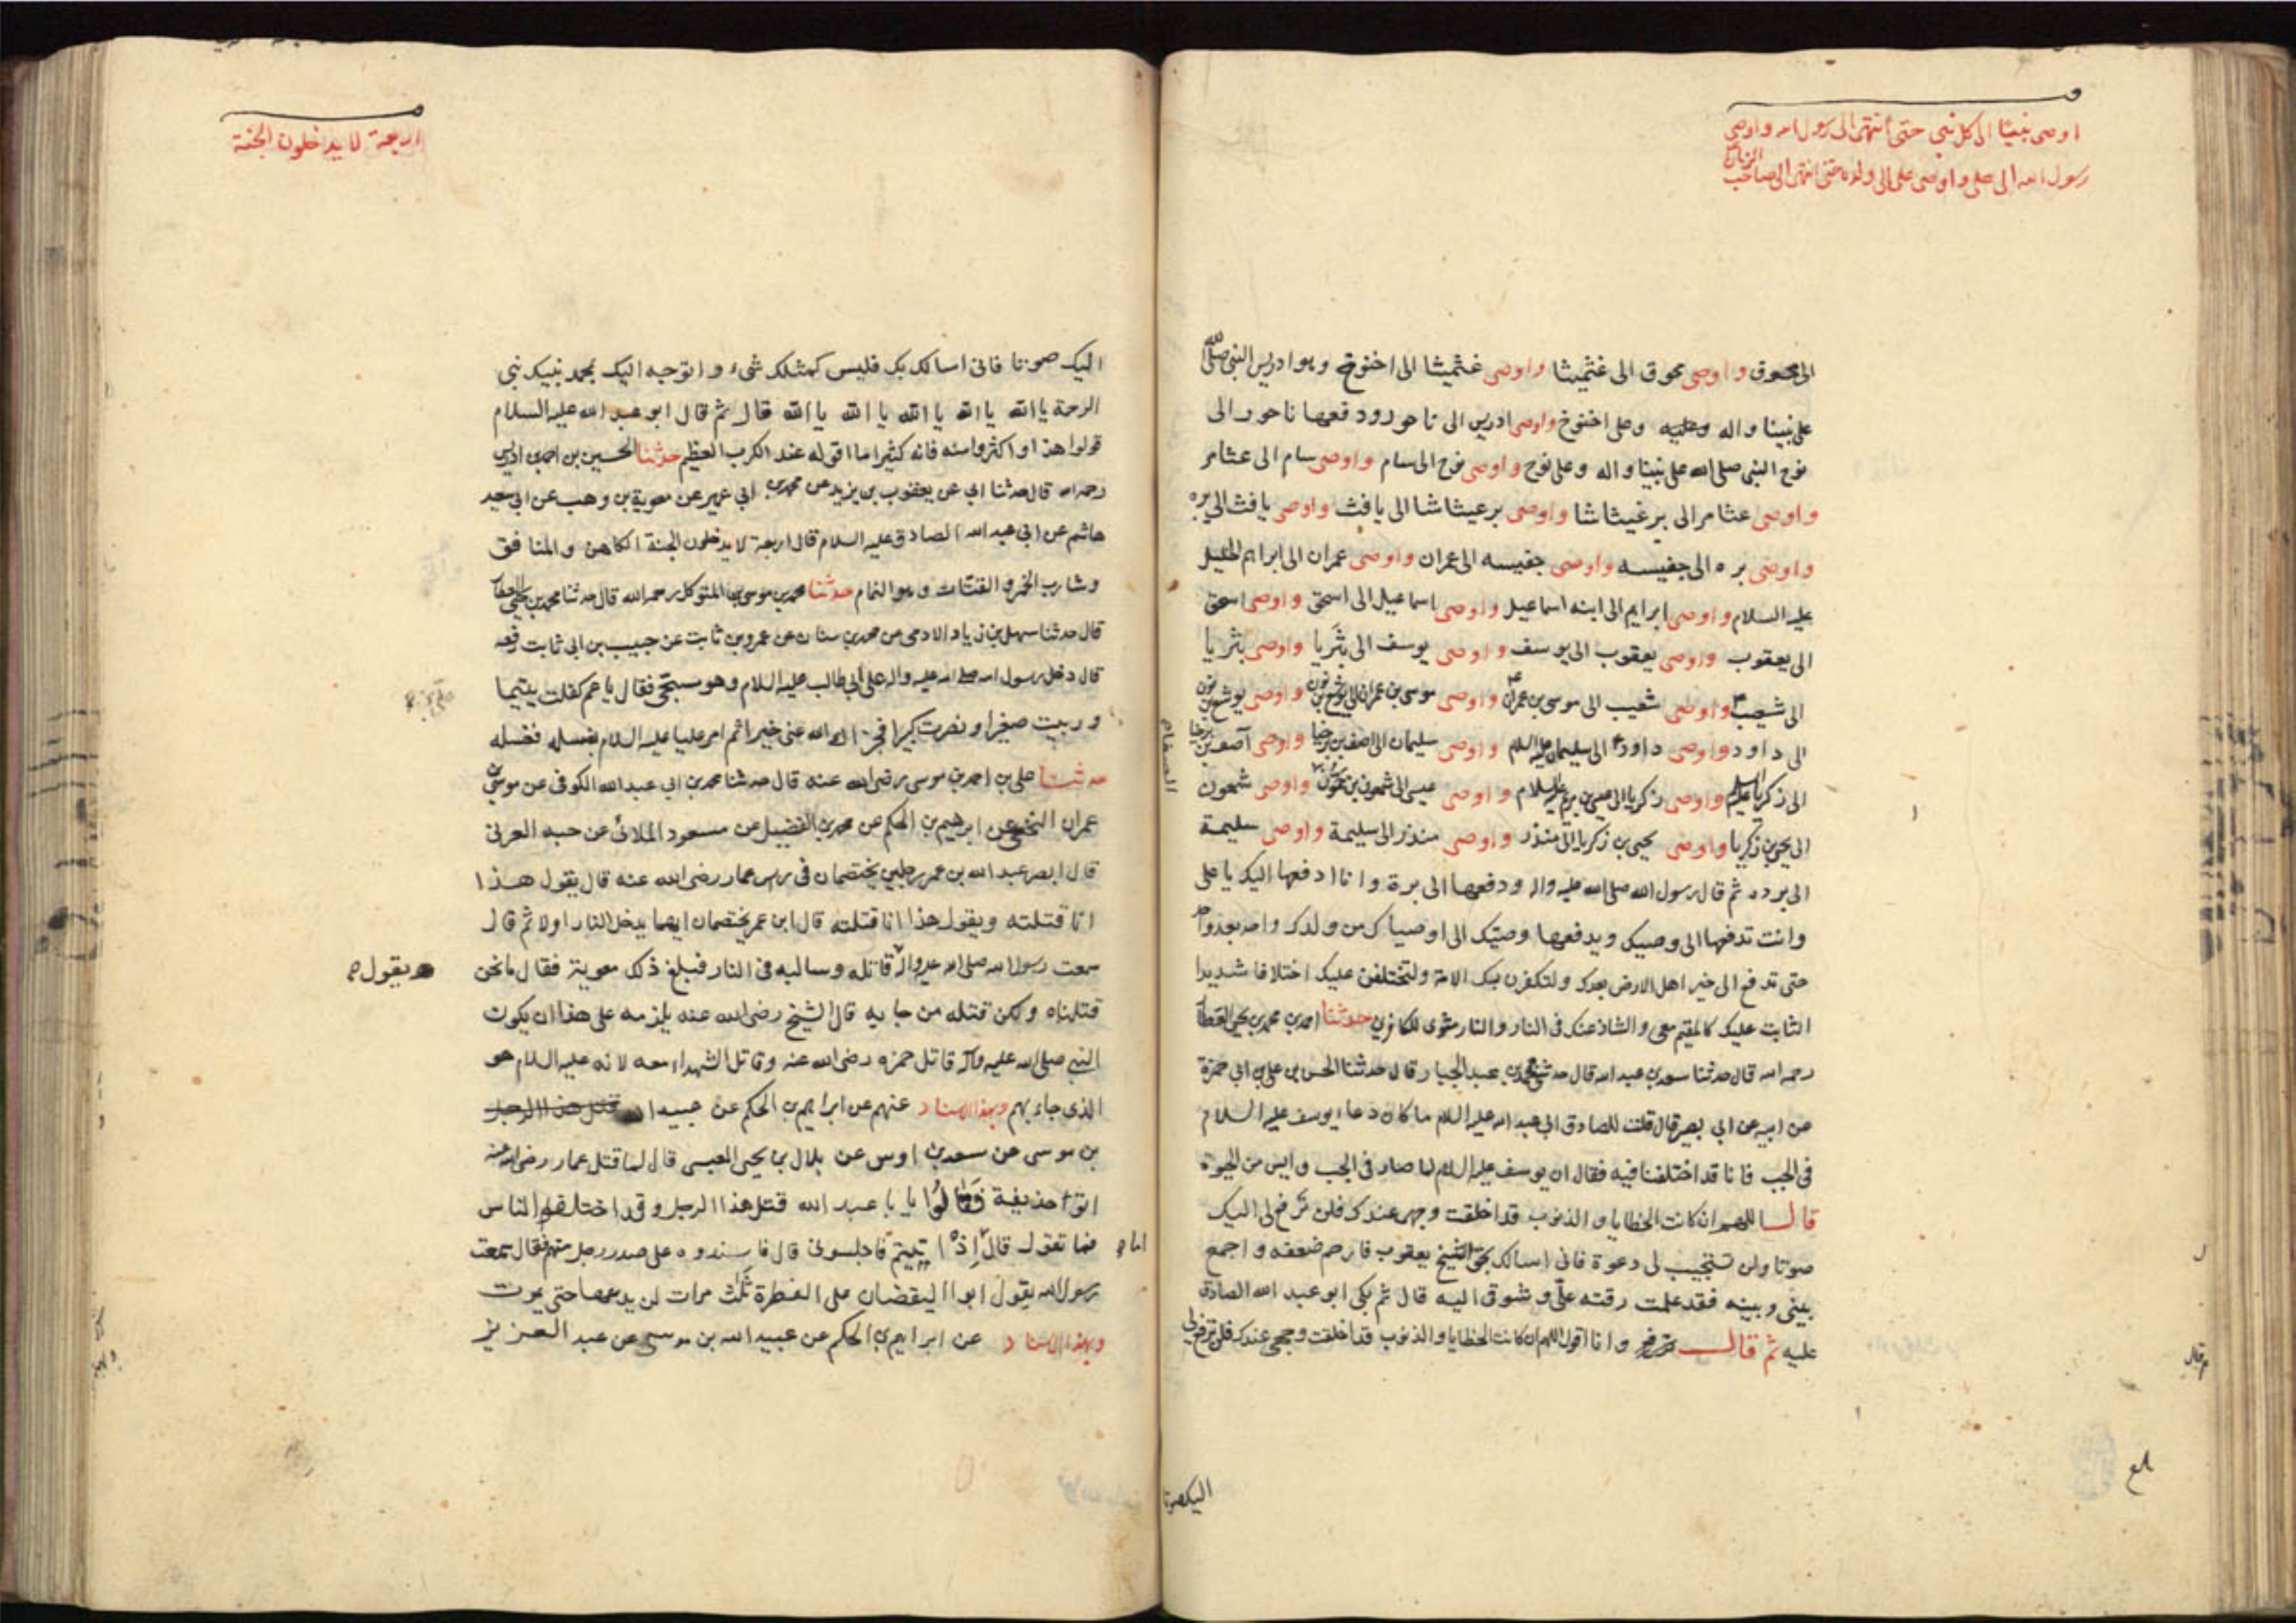 اوصى نبينا الى كل نبي حتى انتهى الى رسول الله واوصى
رسول الله الى على واوصى على الى ولده حتى انتهى الى صاحب الزمان
الى محوق واوصى محوق الى غثميشا واوصى غثميشا الى اخنوخ وهو ادريس النبي صلى الله
على نبينا واله وعليه وعلى اخنوخ واوصى ادريس الى ناحور ودفعها ناحور الى
نوح النبي صلى الله على نبينا واله وعلى نوح واوصى نوح الى سام واوصى سام الى عثامر
واوصى عثامر الى برغيثاشا واوصى برعيثاشا الى يافث واوصى يافث الى بره
واوصى بره الى جفيسه واوصى جفيسه الى عمران واوصى عمران الى ابراهيم الخليل
عليه السلام واوصى ابراهيم الى ابنه اسماعيل واوصى اسماعيل الى اسحق واوصى اسحق
الى يعقوب واوصى يعقوب الى يوسف واوصى يوسف الى بثريا واوصى بثريا
الى شعيب واوصى شعيب الى موسى بن عمران واوصى موسى بن عمران الى يوشع بن نون واوصى يوشع بن نون
الى داود واوصى داود الى سليمان عليه السلام واوصى سليمان الى اصف بن برخيا واوصى آصف بن برخيا
الى زكريا عليه السلام واوصى زكريا الى عيسى بن مريم عليه السلام واوصى عيسى الى شمعون بن حمون واوصى شمعون
الى يحيى بن زكريا واوصى يحيى بن زكريا الى منذر واوصى منذر الى سليمة واوصى سليمة
الى برده ثم قال رسول الله صلى الله عليه واله ودفعها الى بردة وانا ادفعها اليك يا على
وانت تدفعها الى وصيك ويدفعها وصيك الى اوصياك من ولدك واحد بعد واحد
حتى تدفع الى خير اهل الارض بعدك ولتكفرن بك الامة ولتختلفن عليك اختلافا شديدا
الثابت عليك كالمقيم معى والشاذ عنك فى النار والنار مثوى للكافرين حدثنا احمد بن محمد بن يحيى العطار
رحمه الله قال حدثنا سعد بن عبد الله قال حدثنى محمد بن عبد الجبار قال حدثنا الحسن بن على بن ابى حمزة
عن ابيه عن ابى بصير قال قلت للصادق ابى عبد الله عليه السلام ما كان دعا يوسف عليه السلام
فى الجب فانا قد اختلفنا فيه فقال ان يوسف عليه السلام لما صار فى الجب وايس من الحيوة
قال اللهم ان كانت الخطايا والذنوب قد اخلقت وجهى عندك فلن ترفع لى اليك
صوتا ولن تستجيب لى دعوة فانى اسالك بحق الشيخ يعقوب فارحم ضعفه واجمع
بينى وبينه فقد علمت رقته علّى وشوقى اليه قال ثم بكى ابو عبد الله الصادق
عليه ثم قال وانا اقول اللهم ان كانت الخطايا والذنوب قد اخلقت وجهى عندك فلن ترفع لى
اليك صوتا
اربعة لا يدخلون الجنة
اليك صوتا فانى اسالك بك فليس كمثلك شىء واتوجه اليك بمحمد نبيك نبى
الرحمة يا الله يا الله يا الله يا الله يا الله قال ثم قال ابو عبد الله عليه السلام
قولوا هذا واكثروا منه فانه كثيرا ما اقوله عند الكرب العظيم حدثنا الحسين بن احمد بن ادريس
رحمه الله قال حدثنا ابى عن يعقوب بن يزيد عن محمد بن ابى عمير عن معوية بن وهب عن ابى سعيد
هاشم عن ابى عبد الله الصادق عليه السلام قال اربعة لا يدخلون الجنة الكاهن والمنافق
وشارب الخمر والقتات وهو النمام حدثنا محمد بن موسى بن المتوكل رحمه الله قال حدثنا محمد بن يحيى العطار
قال حدثنا سهل بن زياد الادمى عن محمد بن سنان عن عمرو بن ثابت عن حبيب بن ابى ثابت رفعه
قال دخل رسول الله صلى الله عليه واله على ابى طالب عليه السلام وهو مسجى فقال يا عم كفلت يتيما
وربيت صغيرا ونصرت كبيرا فجزاك الله عنى خيرا ثم امر عليا عليه السلام بغسله فغسله
حدثنا على بن احمد بن موسى رضى الله عنه قال حدثنا محمد بن ابى عبد الله الكوفى عن موسى بن
عمران النخعى عن ابرهيم بن الحكم عن محمد بن الفضيل عن مسعود الملائى عن حبه العرنى
قال ابصر عبد الله بن عمر رجلين يختصمان فى راس عمار رضى الله عنه قال يقول هذا
انا قتلته ويقول هذا انا قتلته قال ابن عمر يختصمان ايهما يدخل النار اولا ثم قال
سمعت رسول الله صلى الله عليه واله قاتله وسالبه فى النار فبلغ ذلك معوية فقال ما نحن
يقول
قتلناه ولكن قتله من جا به قال الشيخ رضى الله عنه يلزمه على هذا ان يكون
النبى صلى الله عليه وآله قاتل حمزه رضى الله عنه وقاتل الشهداء معه لانه عليه السلام هو
الذى جاء بهم وبهذا الاسناد عنهم عن ابراهيم بن الحكم عن عبيد الله قتل هذا الرجل
بن موسى عن سعد بن اوس عن بلال بن يحيى العبسى قال لما قتل عمار رضى الله عنه
اتوا حذيفة فقالوا يا با عبد الله قتل هذا الرجل وقد اختلف الناس
فما تقول قال اذا اتيتم فاجلسونى قال فاسندوه على صدر رجل منهم فقال سمعت
اما
رسول الله يقول ابو اليقضان على الفطرة ثلث مرات لن يدعها حتى يموت
وبهذا الاسناد عن ابراهيم بن الحكم عن عبيد الله بن موسى عن عبد العزيز